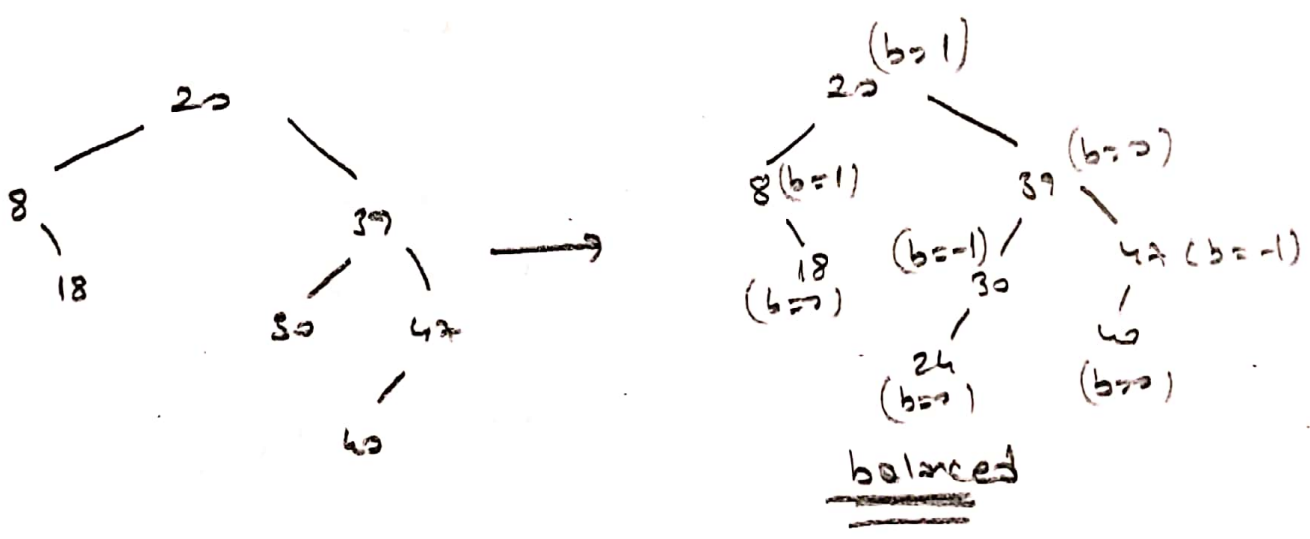 20
8
39
18
30
47
40
(b=1)
20
8(b=1)
39
(b=0)
18
(b=0)
(b=-1)
30
47 (b=-1)
24
(b=0)
40
(b=0)
balanced